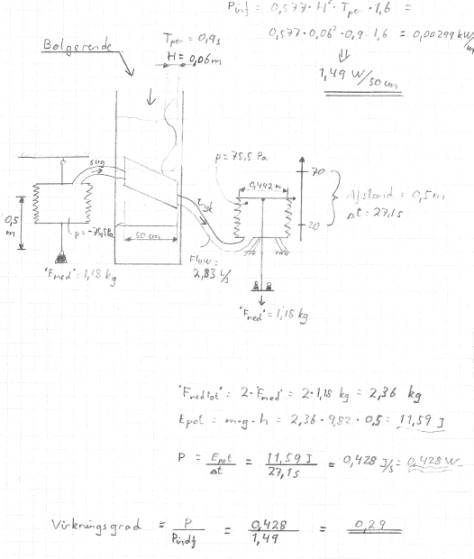 Pindf = 0,577 · H² · Tper · 1,6 =
0,577 · 0,06² · 0,9 · 1,6 = 0,00299 kW/m
⇓
1,49 W/50 cm
Bølgerende
Tper = 0,9s
H = 0,06m
sug
p = 75,5 Pa
0,442 m
70
20
Afstand = 0,5m
Δt: 27,1s
0,5 m
50 cm
Flow: 2,83 L/s
"Fned" = 1,18 kg
"Fned" = 1,18 kg
"Fnedtot": 2 · "Fned" = 2 · 1,18 kg = 2,36 kg
Epot = m · g · h = 2,36 · 9,82 · 0,5 = 11,59 J
P = Epot/Δt = 11,59 J/27,1s = 0,428 J/s = 0,428 W
Virkningsgrad = P/Pindf = 0,428/1,49 = 0,29